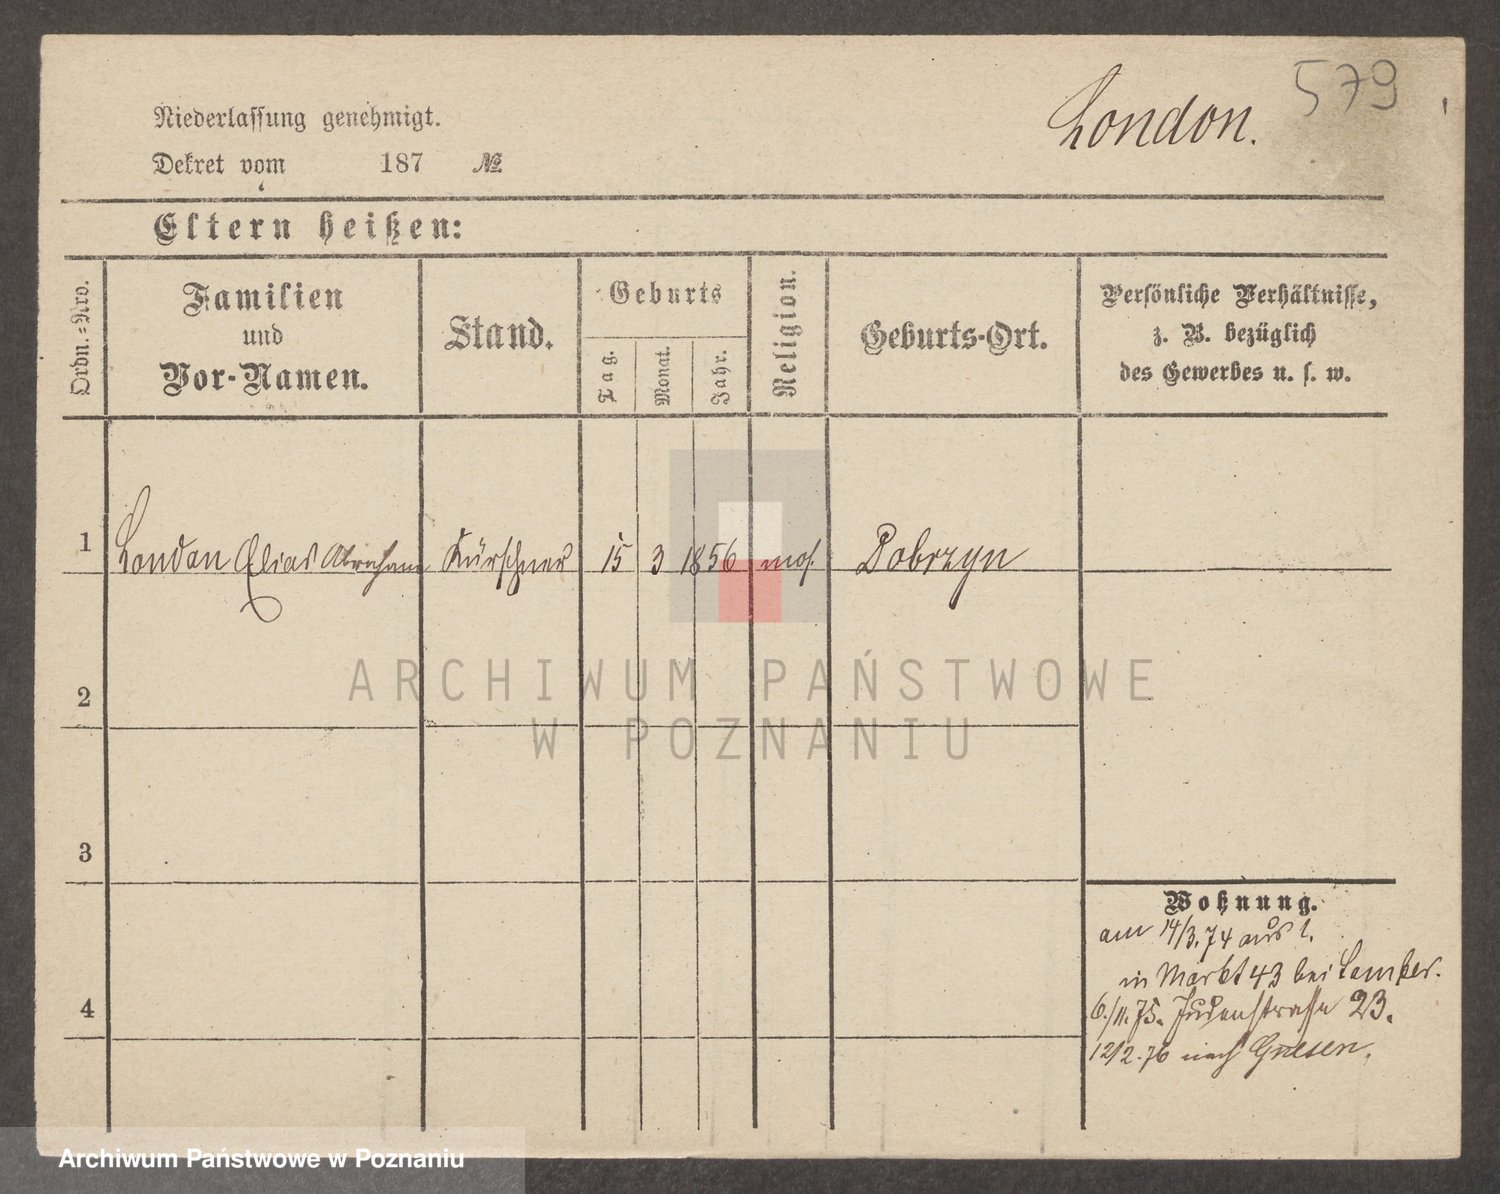 579
London.
Niederlassung genehmigt.
Dekret vom 187 №
Eltern heißen:
Ordn.=Nro.
Familien
und
Vor-Namen.
Stand.
Geburts
Tag.
Monat.
Jahr.
Religion.
Geburts-Ort.
Persönliche Verhältnisse,
z. B. bezüglich
des Gewerbes u. s. w.
1 London Elias Abraham Kürschner 15 3 1856 mos. Dobrzyn
2
3
4
Wohnung.
am 14/3.74 aus
in Markt 43 bei
6./11.75. Judenstrasse 23.
12/2.76 nach Gnesen.
ARCHIWUM PAŃSTWOWE
W POZNANIU
Archiwum Państwowe w Poznaniu